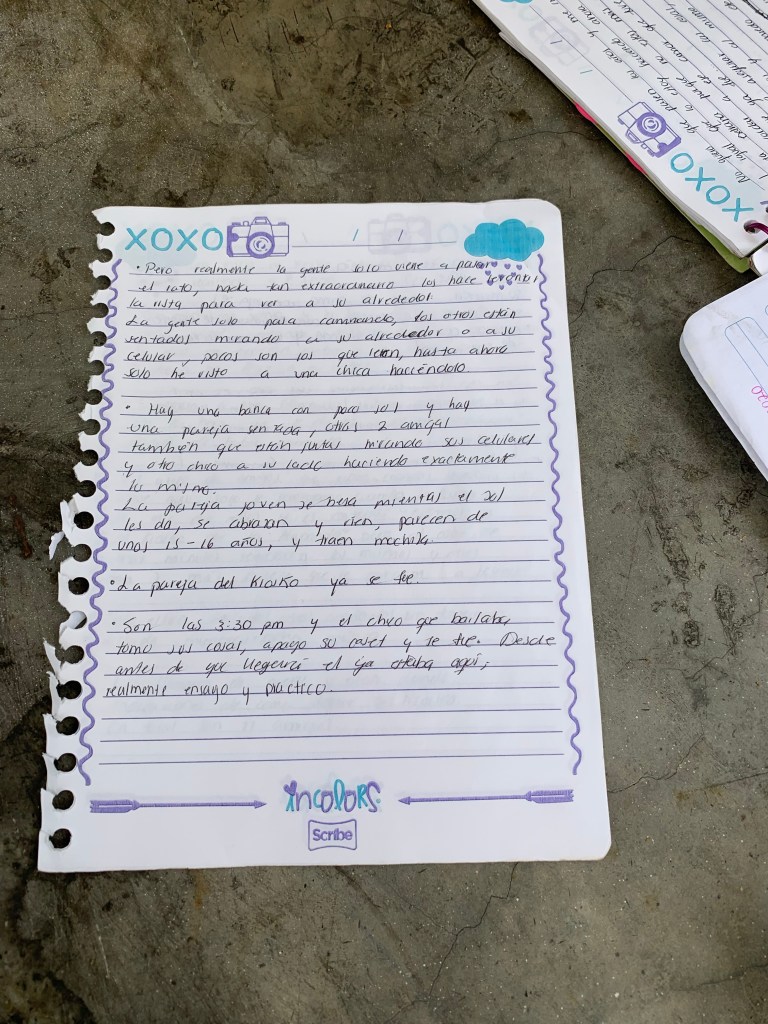 XOXO / /
• Pero realmente la gente solo viene a pasar
el rato, nada tan extraordinario los hace
la vista para ver a su alrededor.
La gente solo pasa caminando, los otros están
sentados mirando a su alrededor o a su
celular, pocos son los que leen, hasta ahora
solo he visto a una chica haciéndolo
• Hay una banca con poco sol y hay
una pareja sentada, otras 2 amigas
también que están juntas mirando sus celulares
y otro chico a su lado haciendo exactamente
lo mismo.
La pareja joven se besa mientras el sol
les da, se abrazan y rien, parecen de
unos 15-16 años, y traen mochila
• La pareja del Kiosko ya se fue.
• Son las 3:30 pm y el chico que bailaba
tomo sus cosas, apago su y se fue. Desde
antes de que llegara el ya estaba aquí,
realmente ensayo y practico.
incolors.
Scribe
XOXO
2020